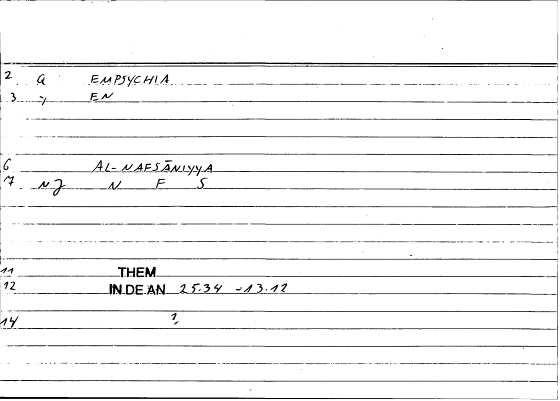 2 Q EMPSYCHIA
3 y EN
6 AL-NAFSĀNIYYA
7 NJ N F S
11 THEM
12 IN DE AN 25.34 -13.12
14 ?